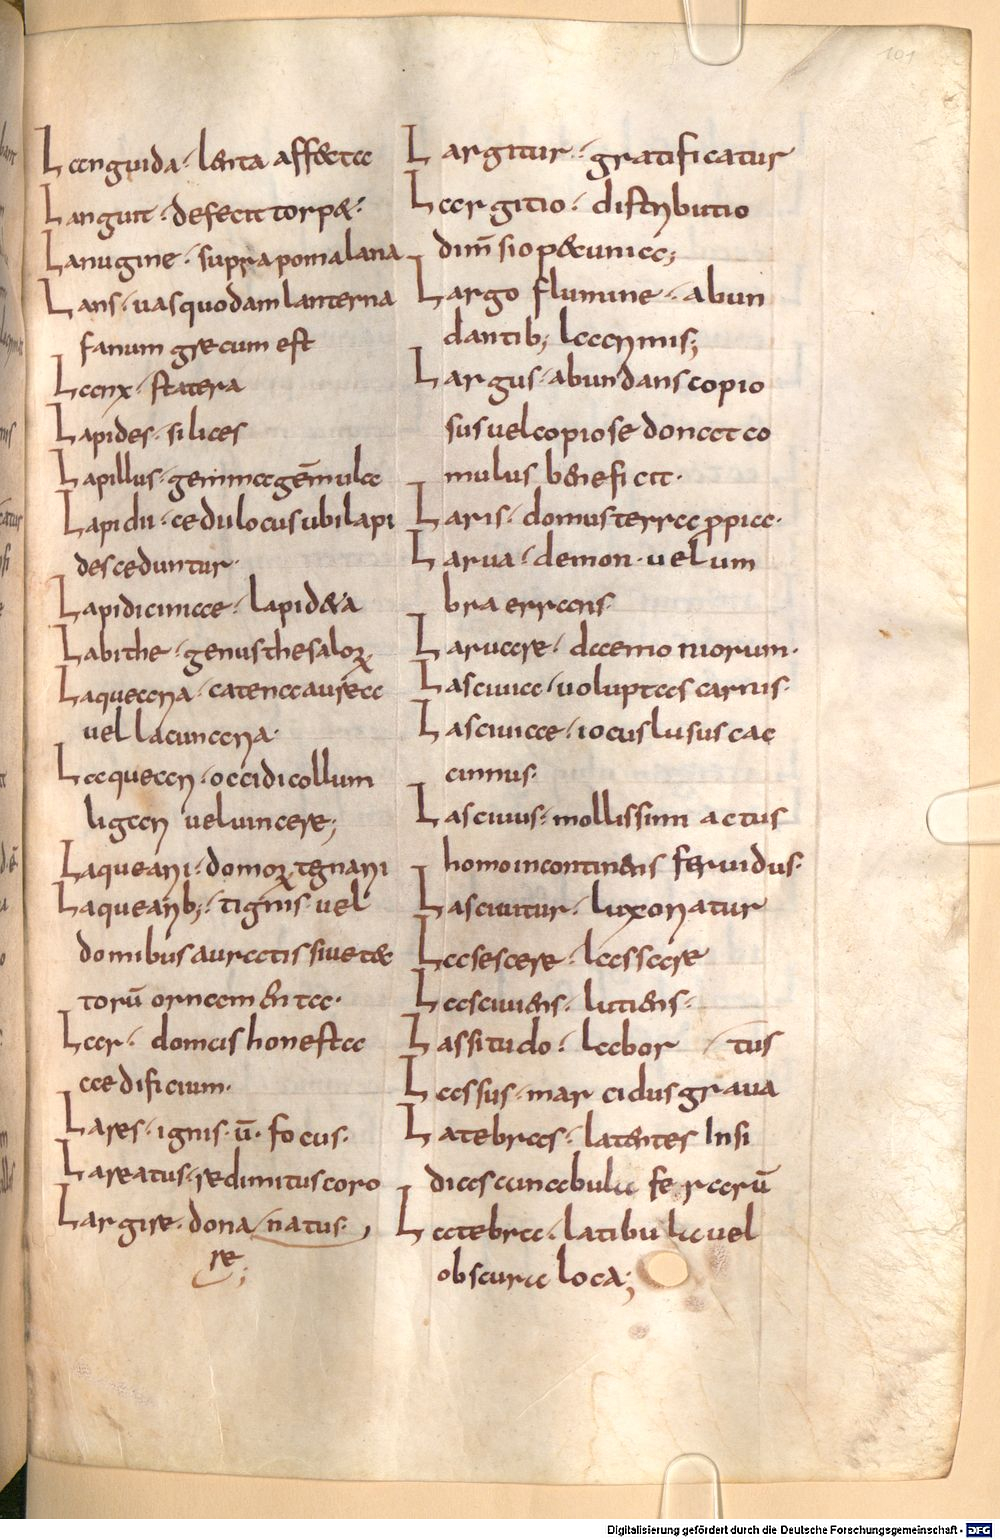 101
Languida · lenta affecta
Languit · defecit torpet·
Lanugine · supra poma lana
Lans · uas quodam lanterna
fanum grecum est
Lanx · statera
Lapides · silices
Lapillus · gemma gēmula
Lapidii · cedu locus ubi lapi
des ceduntur·
Lapidicinae · lapideta
Labithe · genus thesaloꝝ
Laquearia · catena aurea
uel lacunaria·
Laquear · occidi collum
ligari uel uincere;
Laqueari · domoꝝ tegnari
Laquearib; · tignis uel
domibus auratis siue tec
torū ornamenta·
Lar · domus honesta
aedificium·
Lares · ignis · ū · focus·
Lareatus · redimitus coro
Largire · dona / natus·
re;
Largitur · gratificatur
Largitio · distributio
dimsio pecunia;
Largo flumine · abun
dantib; lacrimis;
Largus · abundans copio
sus uel copiose donat co
mulus beneficit·
Laris · domus terra ꝓpia·
Larua · demon · uel um
bra errans·
Laruare · daemoniorum·
Lasciuia · uoluptas carnis·
Lasciuiae · iocus lusus cac
cinnus·
Lasciuus · mollissim actus
homo incontinens feruidus·
Lasciuitur · luxoriatur
Lasescere · lassare
Lasciuiens · lutiens·
Lassitudo · labor / tus
Lassus · marcidus graua
Latebras · latentes Insi
dias cunabula ferarū
Latebra · latibula uel
obscura loca;
Digitalisierung gefördert durch die Deutsche Forschungsgemeinschaft - DFG